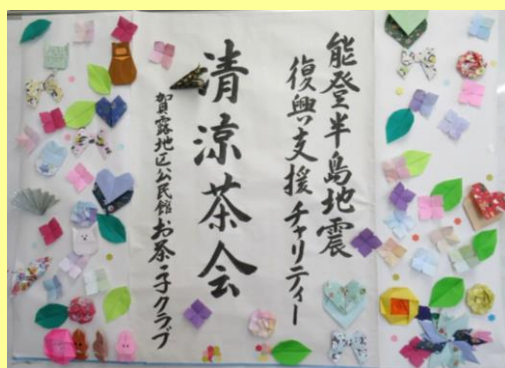 能登半島地震
復興支援チャリティー
清涼茶会
賀露地区公民館お茶っ子クラブ